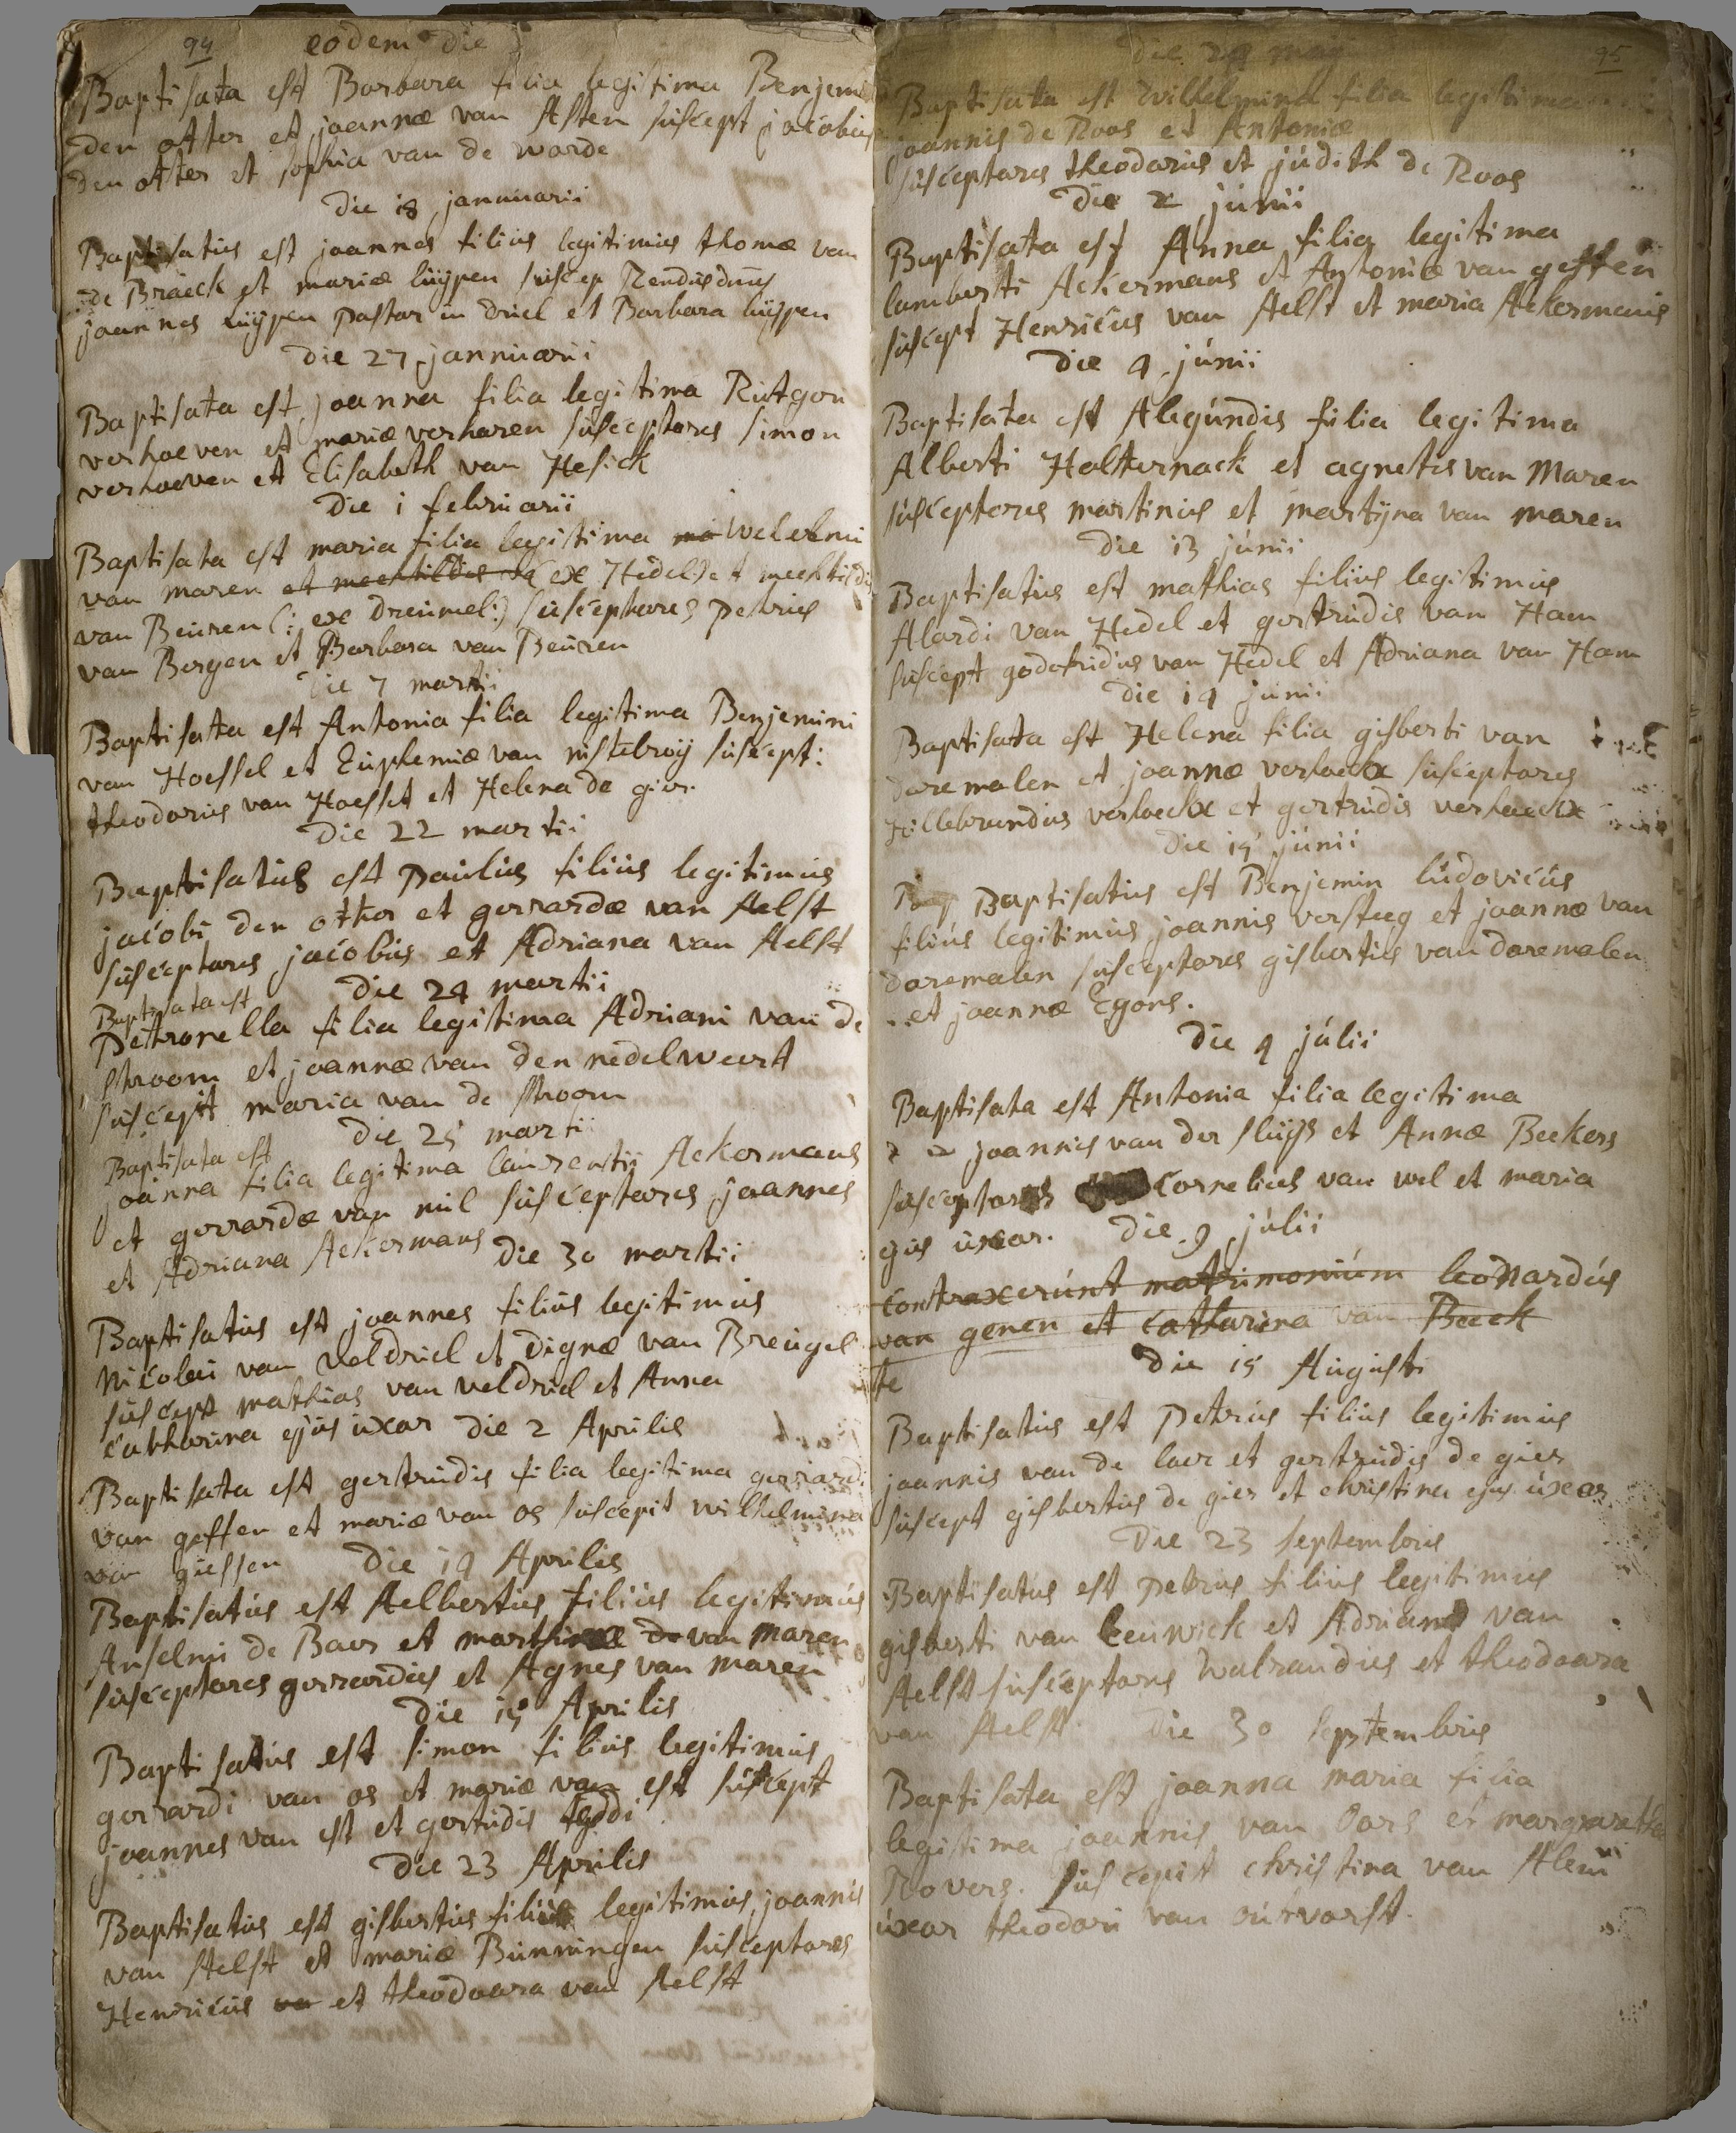 94 eodem die
Baptisata est Barbara filia legitima Benjemi
den otter et joannæ van Alten suscept jacobus
den otter et sophia van de worde
die 18 januuarii
Baptisatus est joannes filius legitimus thomæ van
de Braeck et mariæ luijpen suscep Rendusdnus
joannes luijpen pastor in driel et Barbara luijpen
die 27 jannuarii
Baptisata est joanna filia legitima Rutgeri
verhoeven et mariæ verharen susceptores simon
verhoeven et Elisabeth van Hesick
die 1 februarii
Baptisata est maria filia legitima ma Welelmi
van maren et mechtildis (ex Hedel) et mechtildis
van Beuren (: ex dreumel:) susceptores petrus
van Bergen et Barbara van Beuren
die 7 martii
Baptisata est Antonia filia legitima Benjemini
van Hoessel et Euphemiæ van nistelroij suscept:
theodorus van Hoesset et Helena de gier.
die 22 martii
Baptisatus est paulus filius legitimus
jacobi den otter et gerrardæ van Aelst
susceptores jacobus et Adriana van Aelst
die 24 martii
Baptisata est
petronella filia legitima Adriani van de
stroom et joannæ van den nedelweert
suscepit maria van de stroom
die 25 martii
Baptisata est
joanna filia legitima laurentii Ackermans
et gerrardæ van mil susceptores joannes
et Adriana Ackermans die 30 martii
Baptisatus est joannes filius legitimus
Nicolai van veldriel et dignæ van Breugel
suscept mathias van veldriel et Anna
catharina ejus uxor die 2 Aprilis
Baptisata est gertrudis filia legitima gerrardi
van geffen et mariæ van os suscepit wilhelmina
van giessen die 14 Aprilis
Baptisatus est Aelbertus filius legitimus
Anselmi de Baer et martinæ de van maren
susceptores gerrardus et Agnes van maren
die 15 Aprilis
Baptisatus est simon filius legitimus
gerrardi van os et mariæ van est suscept
joannes van est et gertudis
die 23 Aprilis
Baptisatus est gisbertus filius legitimus joannis
van Aelst et mariæ Bunningen susceptores
Henricus va et theodoara van Aelst
die 24 maij 95
Baptisata est willelmina filia legitima
joannis de Roos et Antoniæ
susceptores theodorus et judith de Roos
die 2 junii
Baptisata est Anna filia legitima
lamberti Ackermans et Antoniæ van geffen
suscept Henricus van Aelst et maria Ackermans
die 4 junii
Baptisata est Alegundis filia legitima
Alberti Holternack et agnetis van Maren
susceptores martinus et martijna van maren
die 13 junii
Baptisatus est mathias filius legitimus
Alardi van Hedel et gertrudis van Ham
suscept godefridus van Hedel et Adriana van Ham
die 14 junii
Baptisata est Helena filia gisberti van
doremalen et joannæ verhoeckx susceptores
Hillebrandus verhoeckx et gertrudis verhoeckx
die 15 junii
Bap Baptisatus est Benjemin ludovicus
filius legitimus joannis versteeg et joannæ van
doremalen susceptores gisbertus van doremalen
et joannæ Egons.
die 4 julii
Baptisata est Antonia filia legitima
joannis van der sluijs et Annæ Beekers
susceptores cornelius van wel et maria
ejus uxor. die 9 julii
contraxerunt matrimonium leonardus
van genen et catharina van Beeck
te die 15 Augusti
Baptisatus est petrus filius legitimus
joannis van de laer et gertrudis de gier
suscept gisbertus de gier et christina ejus uxor
die 23 septembris
Baptisatus est petrus filius legitimus
gisberti van Leeuwick et Adriana van
Aelst susceptores walrandus et theodoara
van Aelst. die 30 septembris
Baptisata est joanna maria filia
legitima joannis van Oors et margaretha
Rovers. suscepit christina van Alem
uxor theodori van ourvorst.